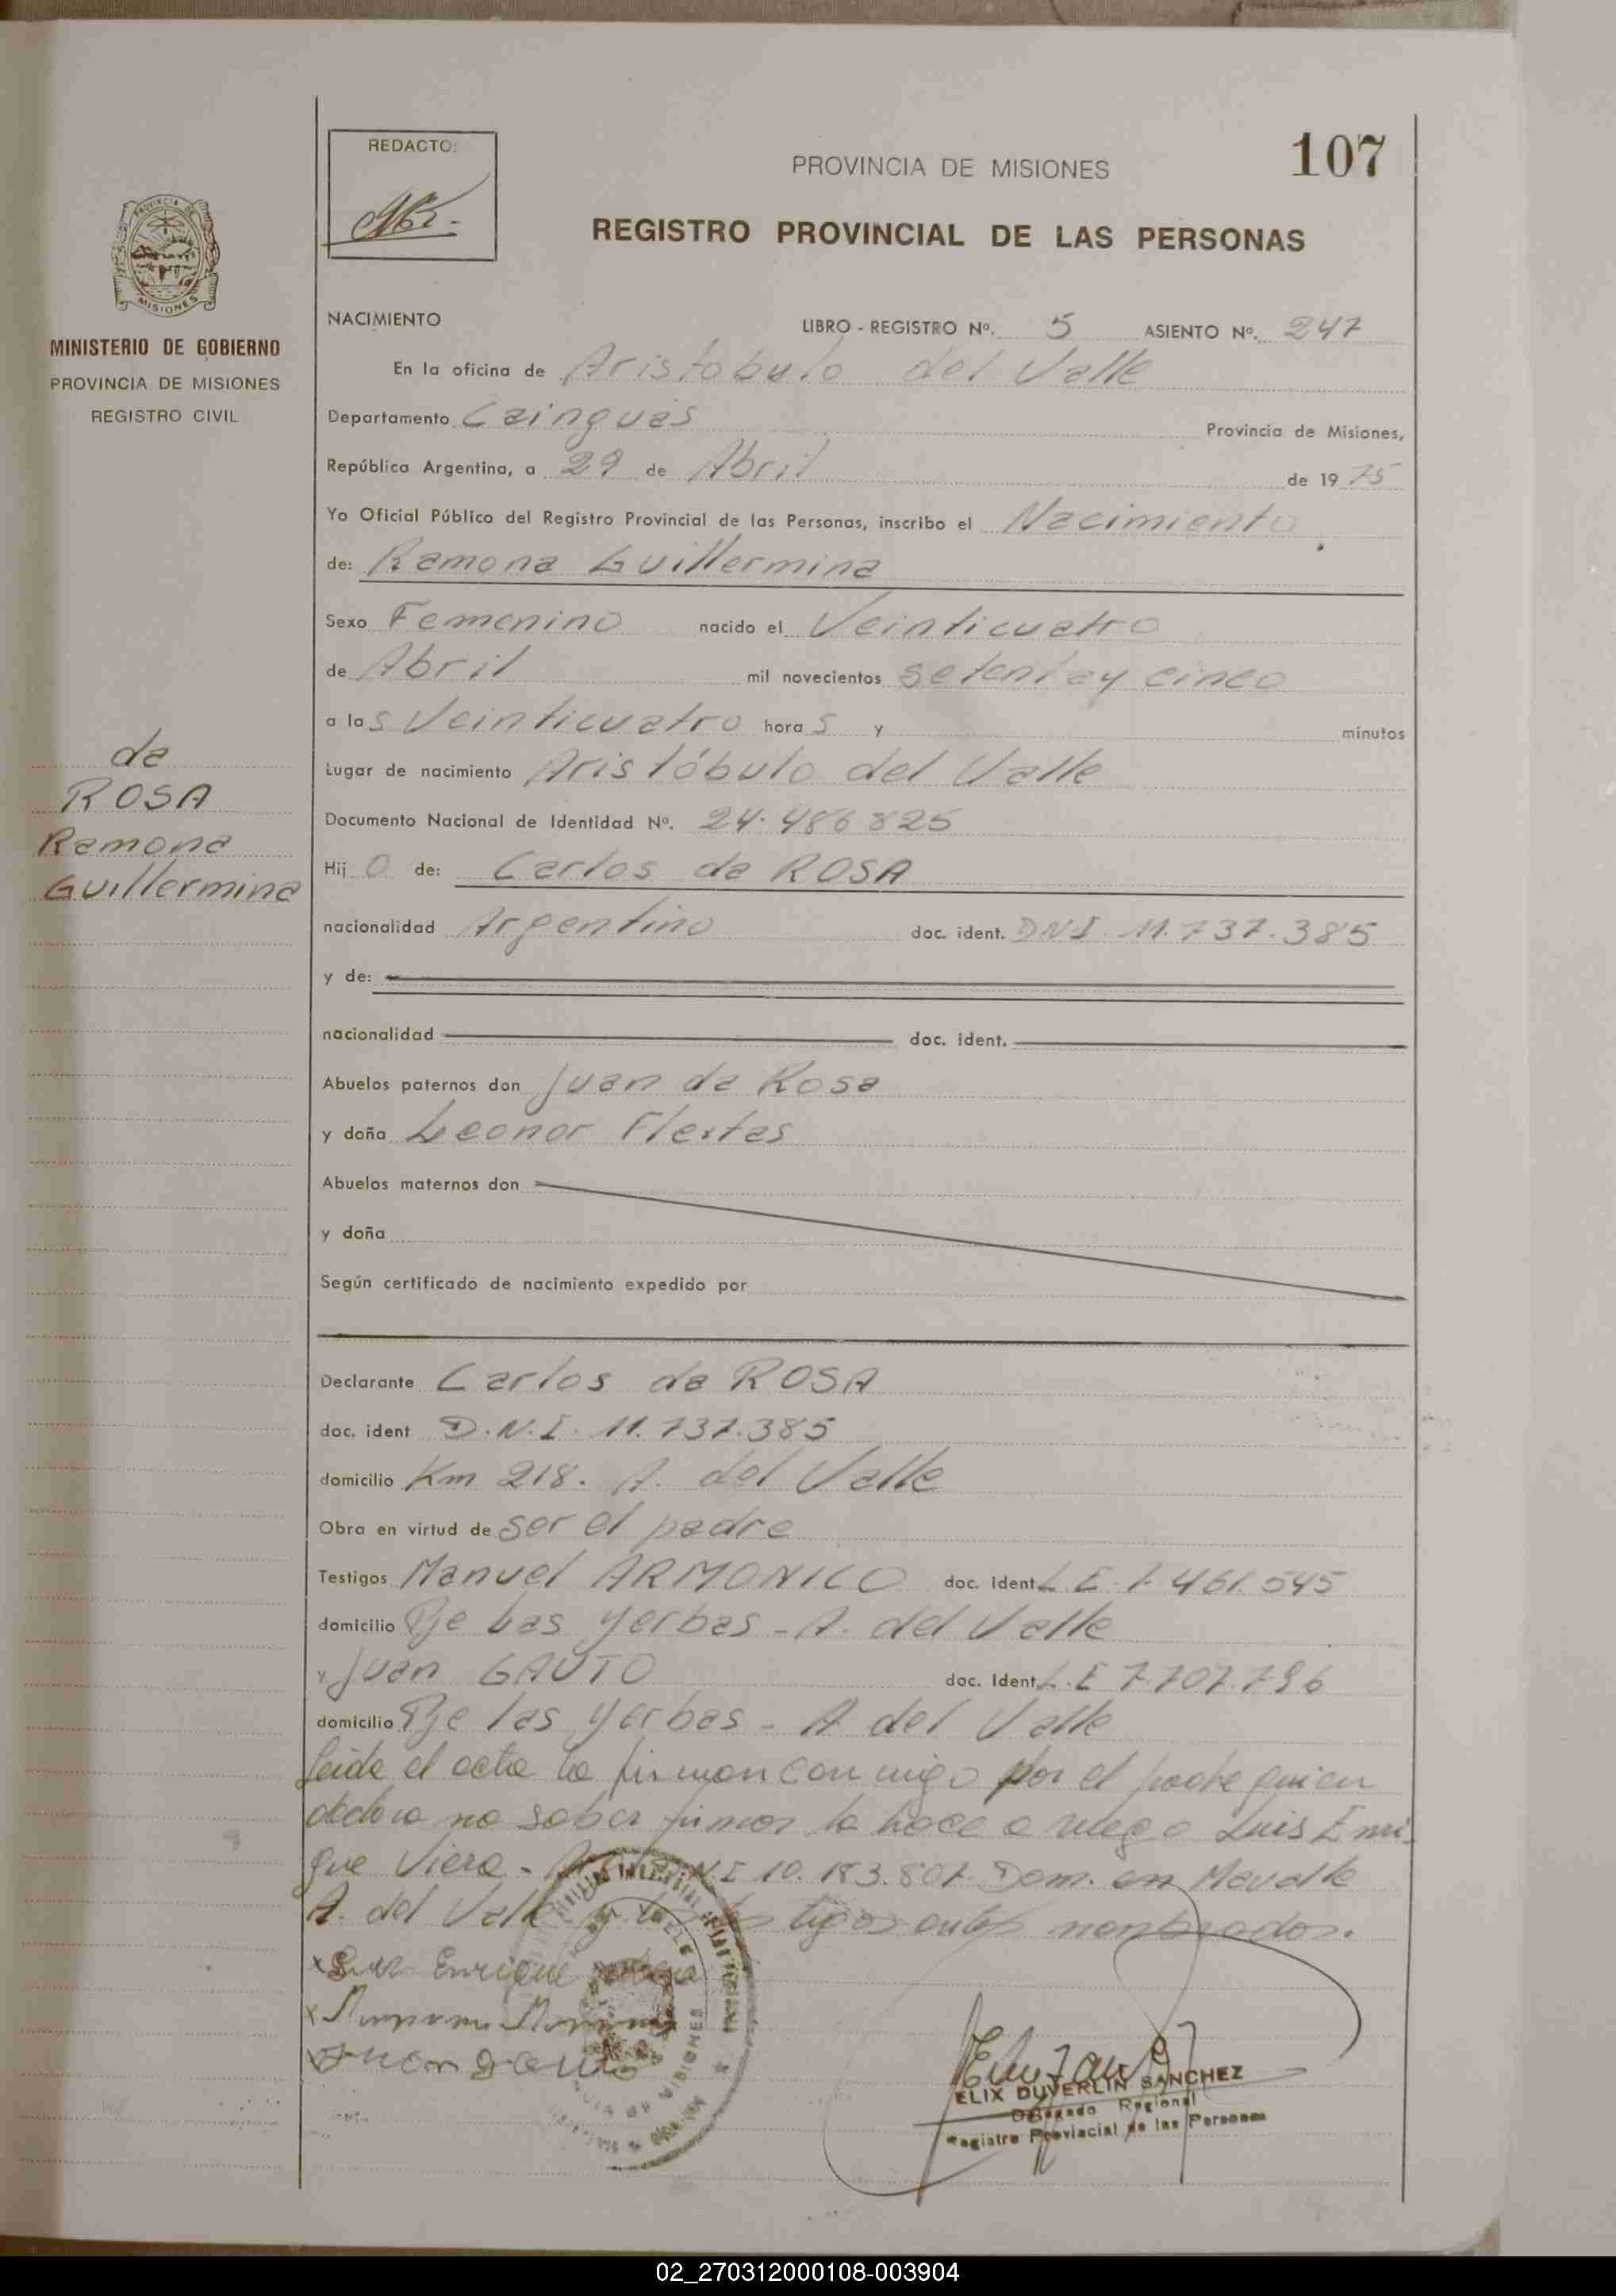 107
REDACTO:
PROVINCIA DE MISIONES
REGISTRO PROVINCIAL DE LAS PERSONAS
MISIONES
MINISTERIO DE GOBIERNO
PROVINCIA DE MISIONES
REGISTRO CIVIL
de
ROSA
Ramona
Guillermina
NACIMIENTO LIBRO - REGISTRO Nº. 5 ASIENTO Nº. 247
En la oficina de Aristobulo del Valle
Departamento Cainguas Provincia de Misiones,
República Argentina, a 29 de Abril de 1975
Yo Oficial Público del Registro Provincial de las Personas, inscribo el Nacimiento
de: Ramona Guillermina
Sexo Femenino nacido el Veinticuatro
de Abril mil novecientos setenta y cinco
a las Veinticuatro horas y minutos
Lugar de nacimiento Aristóbulo del Valle
Documento Nacional de Identidad Nº. 24.486825
Hijo de: Carlos da ROSA
nacionalidad Argentino doc. ident. DNI 11.737.385
y de:
nacionalidad doc. ident.
Abuelos paternos don Juan da Rosa
y doña Leonor Fleitas
Abuelos maternos don
y doña
Según certificado de nacimiento expedido por
Declarante Carlos da ROSA
doc. ident D.N.I. 11.737.385
domicilio Km 218. A. del Valle
Obra en virtud de ser el padre
Testigos Manuel ARMONICO doc. ident L E 7.461.545
domicilio Pje Las Yerbas - A. del Valle
y Juan GAUTO doc. Ident L.E 7.707.796
domicilio Pje las Yerbas - A del Valle
Leida el acta la firman con migo por el padre quien
declara no saber firmar lo hace a ruego Luis Enri-
que Viera - N.I 10.183.807. Dom. en
A. del Valle y los testigos antes nombrados.
Enrique
Juan Gauto
ELIX DUVERLIN SANCHEZ
Delegado Regional
Registro Provincial de las Personas
02_270312000108-003904